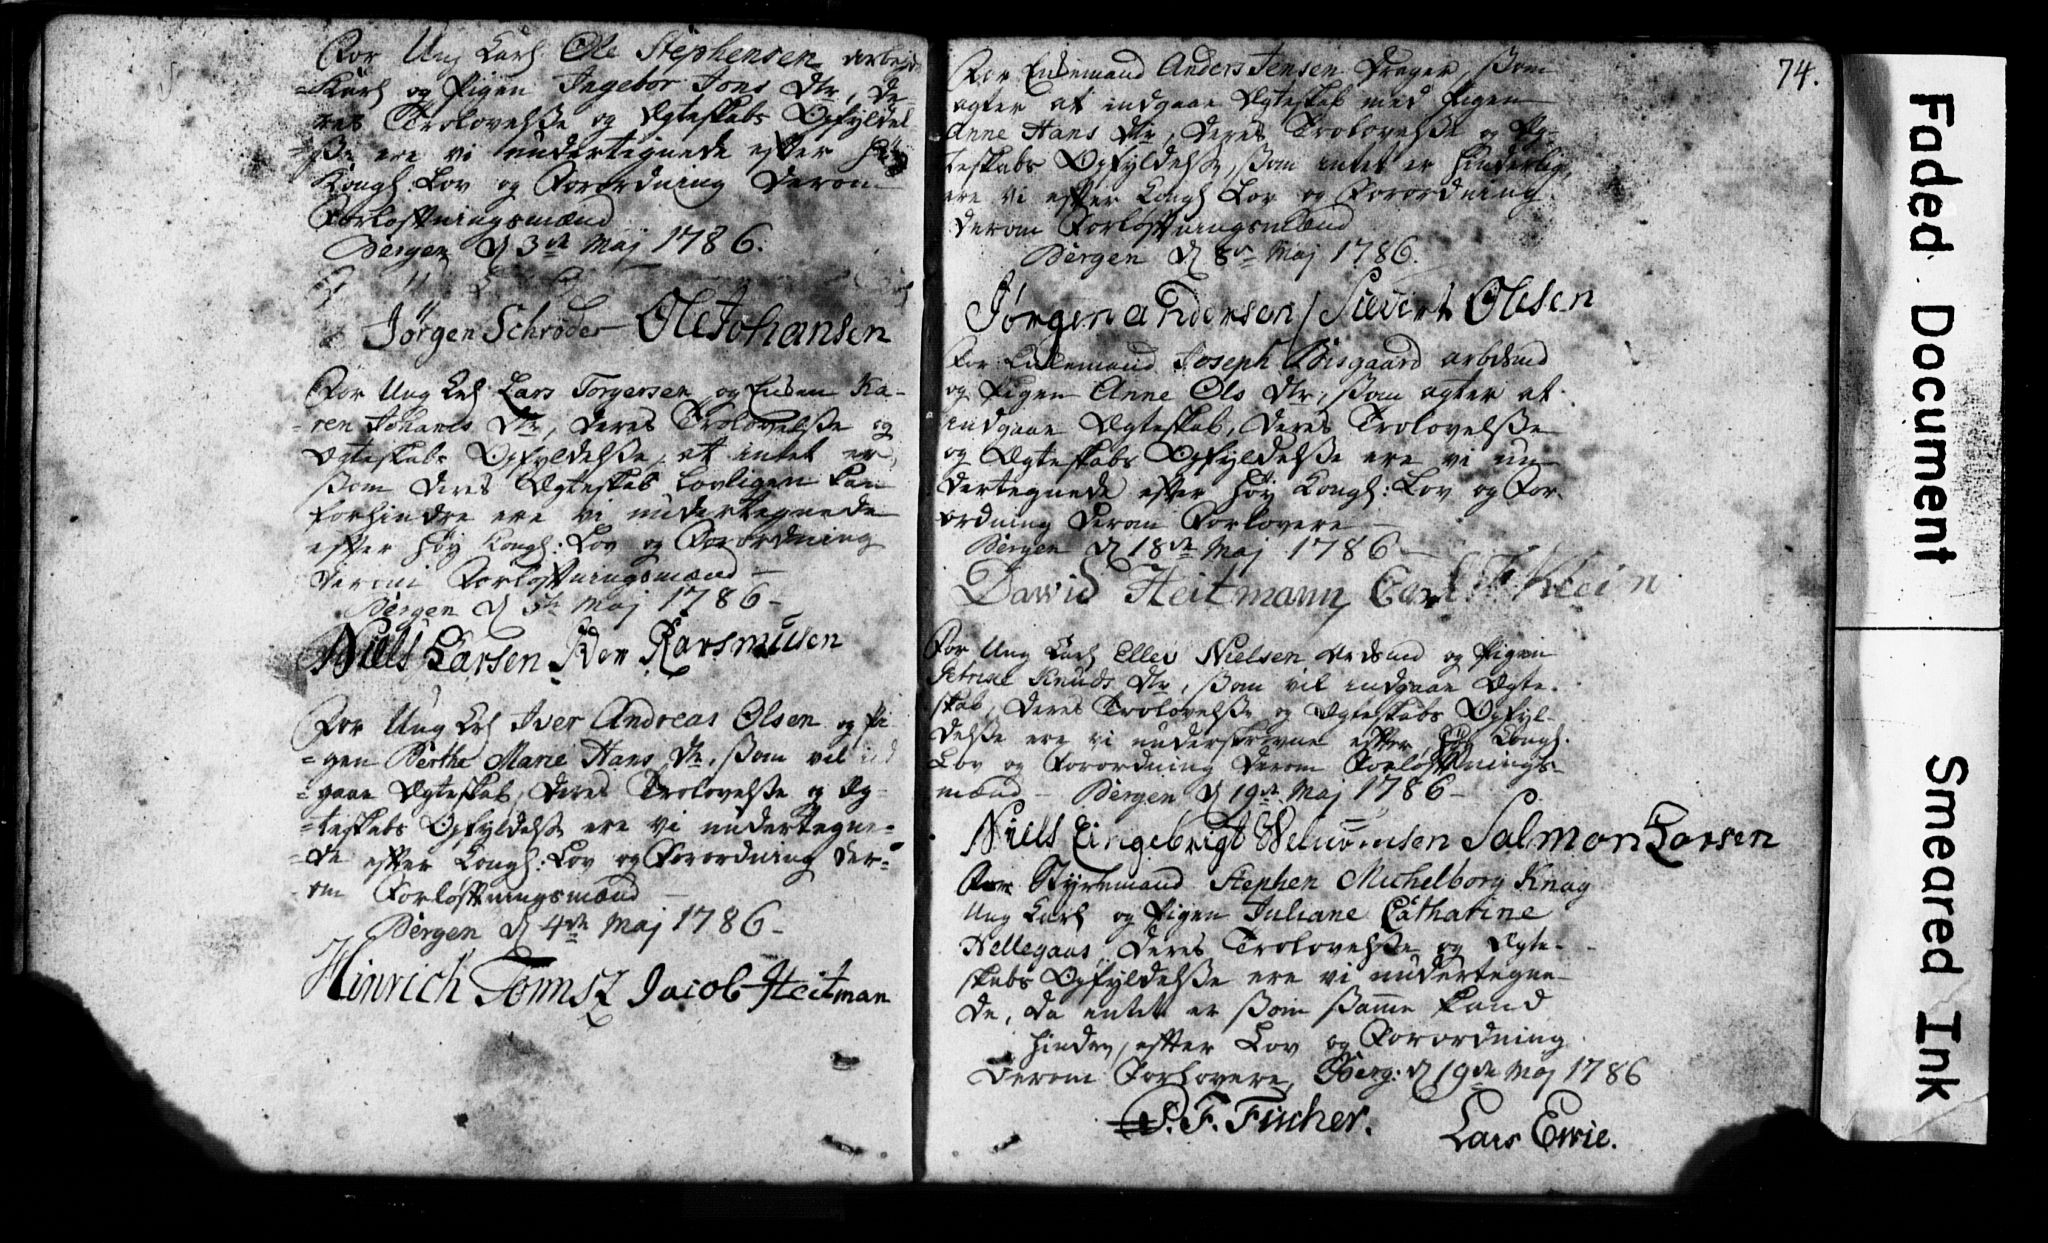 For Ung Karl Ole Stephensen arbeids
Karl og Pigen Ingebor Jons Dtr, De-
res Trolovelsse og Egteskabs Opfyldel-
sse ere vi undertegnede efter Høy
Kongl. Lov og Forordning Derom
Forløftningsmænd
Bergen d 3de Maj 1786.
Jørgen Schrøder Ole Johansen
For Ung Krl Lars Torgersen og Enken Ka-
-ren Johanes Dtr, Deres Trolovelsse og
Egteskabs Opfyldelsse, at intet er,
ssom deres Egteskab lovligen kan
forhindre ere vi undertegnede
efter høy Kongl: Lov og Forordning
derom Forløftningsmænd -
Bergen d 3de Maj 1786 -
Niels Larsen Iver Rarsmusen
For Ung Krl Iver Andreas Olsen og Pi
-gen Berthe Marie Hans Dtr. ssom vil ind
-gaae Egteskab, Deres Trolovelsse og Eg-
-teskabs Opfyldelsse ere vi undertegne-
-de efter Kongl: Lov og Forordning der-
-om Forløftningsmænd -
Bergen d 4de Maj 1786 -
Hinrich Tomsz Jacob Heitman
74.
For Enkemand Anders Jensen Drager, ssom
agter at indgaae Egteskab med Pigen
Anne Hans Dtr, Deres Trolovelsse og Eg-
teskabs Opfyldelsse, ssom intet er hinderlig,
ere vi efter Kongl Lov og Forordning
derom Forløftningsmænd
Bergen d 8de Maj 1786.
Jørgen andersen / Siuert Olesen
For Enkemand Joseph Bisgaard arbdsmd
og Pigen Anne Ols Dtr, ssom agter at
indgaae Egteskab, Deres Trolovelsse
og Egteskabs Opfyldelsse ere vi un-
dertegnede efter høy Kongl: Lov og For-
ordning derom Forlovere -
Bergen d 18de Maj 1786 -
David Heitmann Carl F Klein
For Ung Karl Ellev Nielsen Ardsmd og Pigen
Petrine Knuds Dtr, ssom vil indgaae Egte-
skab, Deres Trolovelsse og Egteskabs Opfyl-
delsse ere vi underskrevne efter høy Kongl.
Lov og Forordning Derom Forløftnings-
mænd - Bergen d 19de Maj 1786 -
Niels Eingebrigt Salmon Larsen
For Styrmand Stephen Michelborg Knag
Ung Karl og Pigen Juliane Catharine
Hellegaas, Deres Trolovelsse og Egte-
skabs Opfyldelsse ere vi undertegne-
de, da intet er ssom ssamme kand
hindre, efter Lov og Forordning
Derom Forlovere, Berg: d 19de Maj 1786
F. Fischer. Lars Ewie.
Faded Document
Smeared Ink